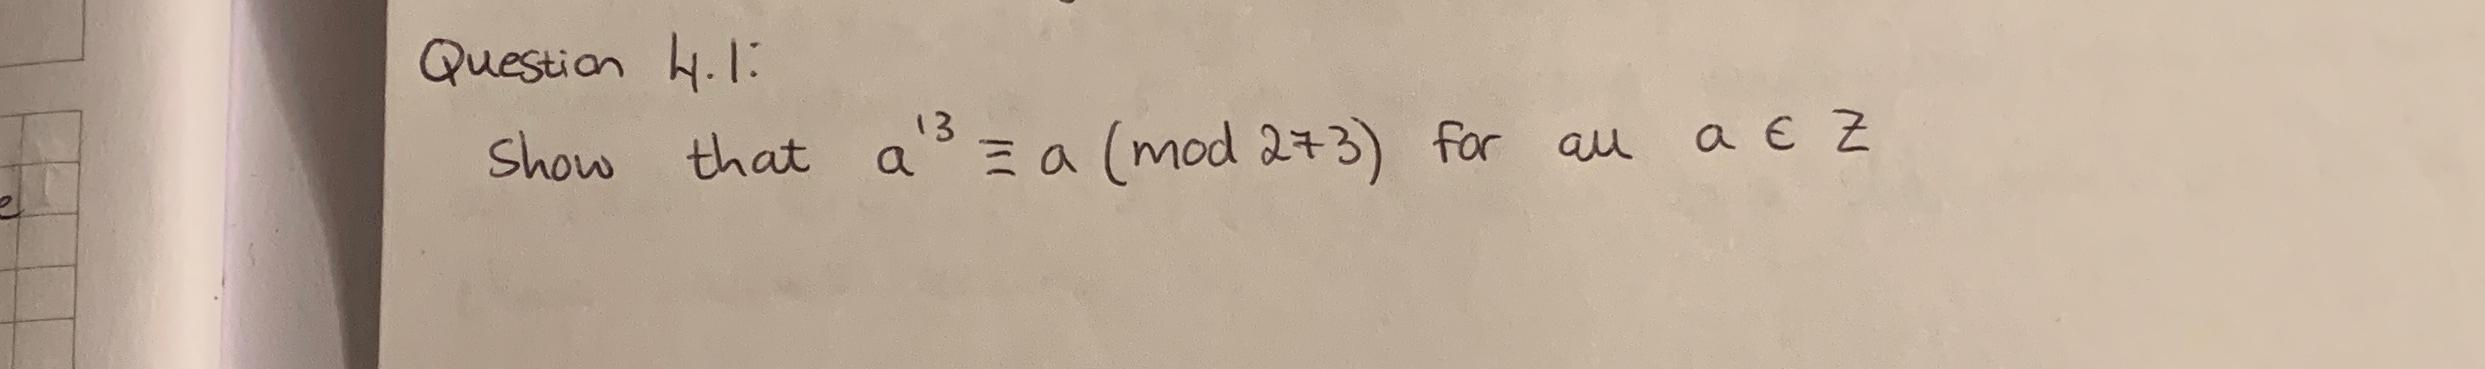 Question 4.1:
Show that a¹³ ≡ a (mod 273) for all a ∈ Z
e